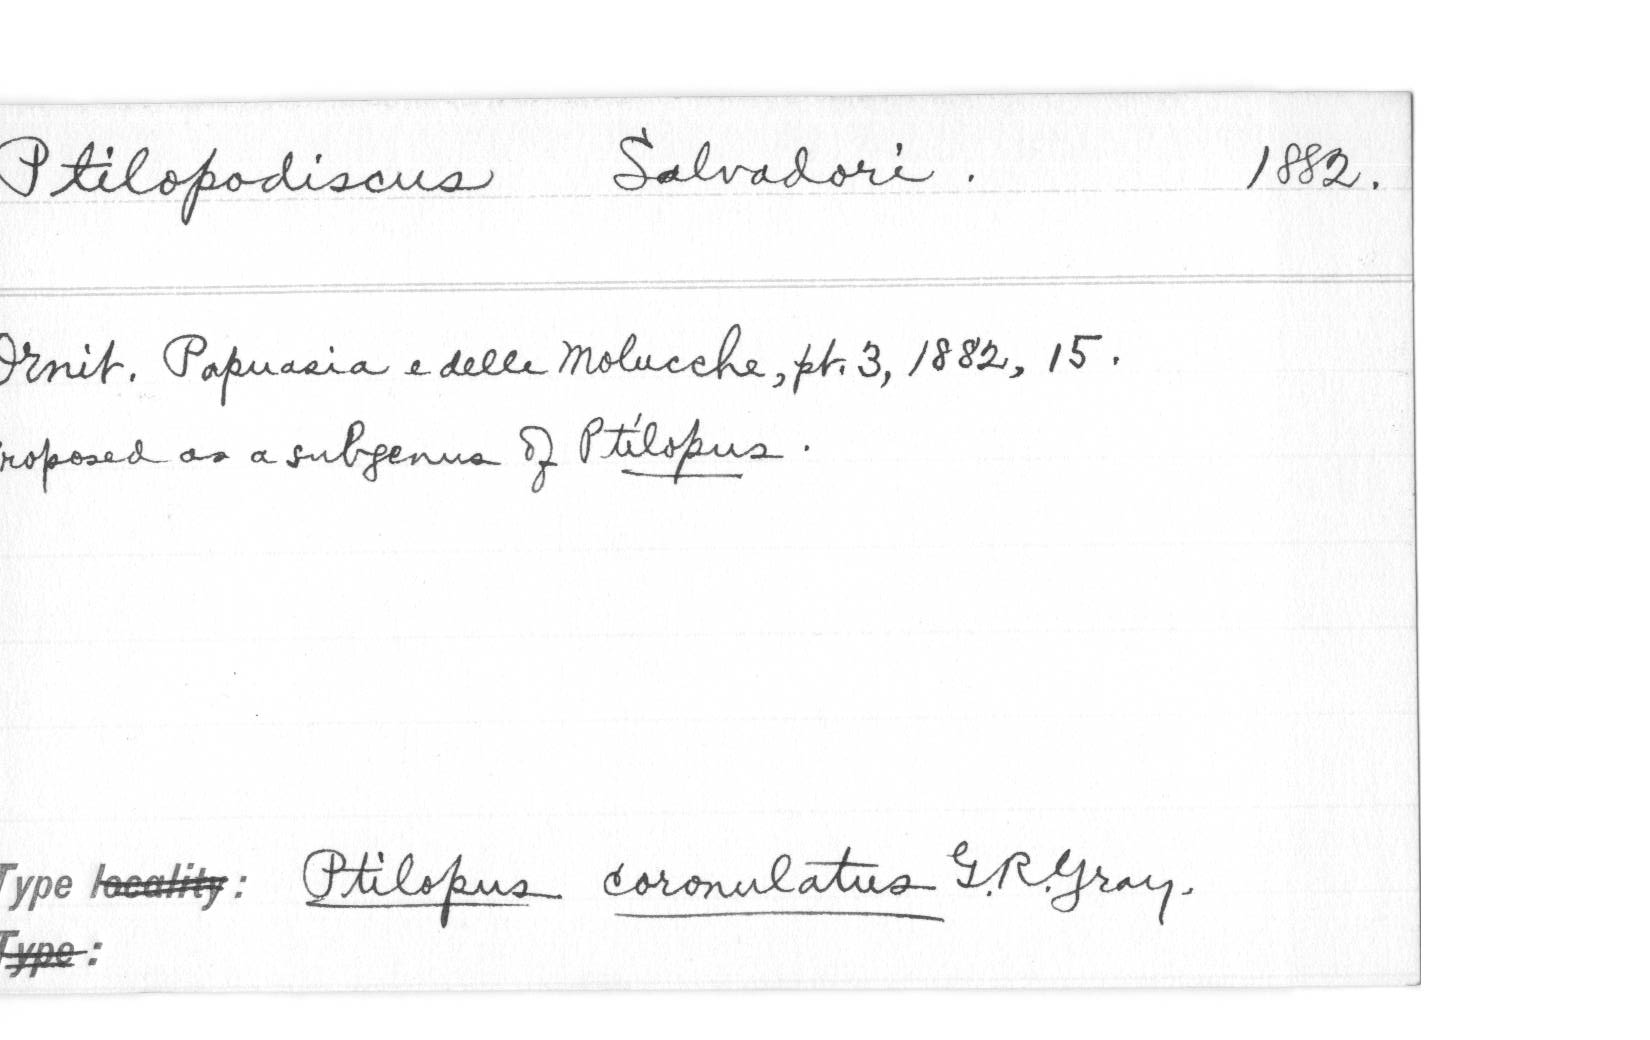 Ptilopodiscus Salvadori. 1882.
Ornit. Papuasia e delle Molucche, pt. 3, 1882, 15.
roposed as a subgenus of Ptilopus.
Type locality: Ptilopus coronulatus G.R.Gray.
Type: